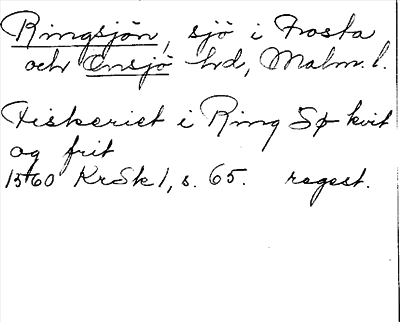 Ringsjön, sjö i Frosta
och Onsjö hd, Malm. l.
Fiskeriet i Ring Sø kvit
og frit
1560 KrSk 1, s. 65. regest.